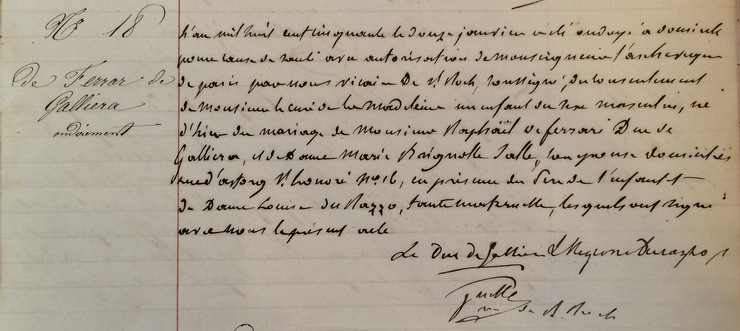 No 18
de Ferrar de
Galliera
ondoiement
L'an mil huit cent cinquante le douze janvier a été ondoyé à domicile
pour cause de santé avec autorisation de monseigneur l'archevêque
de paris par nous vicaire De St Roch, soussigné, du consentement
de Monsieur le curé de la Madeleine un enfant du sexe masculin, né
d'hier du mariage de Monsieur Raphaël de ferrari Duc de
Galliera, et de Dame Marie Brignolle Salle, son epouse domiciliés
rue d'astorg St honoré No 16, en présence du Père de l'enfant et
de Dame Louise du Razzo, tante maternelle, lesquels ont signé
avec nous le présent acte
Le Duc de Galliera L Durazzo
vic de St Roch